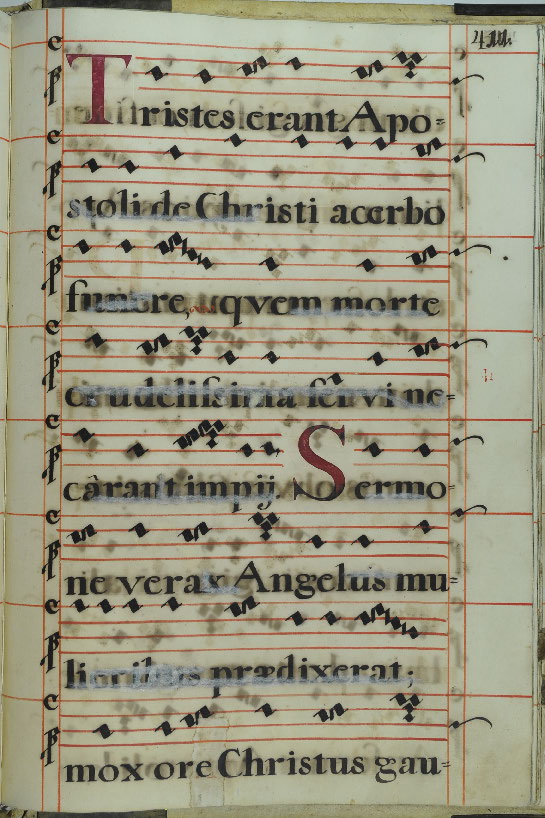 Tristes erant Apo=
stoli de Christi acerbo
funere, quem morte
crudelissima servi ne=
càrant impij. Sermo=
ne verax Angelus mu=
lieribus prædixerat;
mox ore Christus gau=